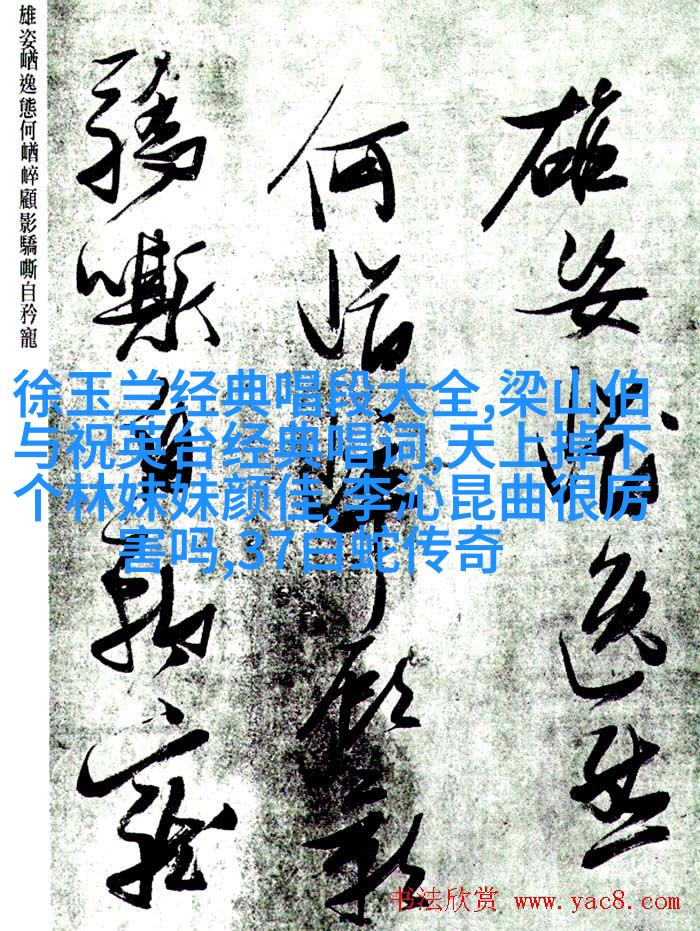 雄姿逸態
何顧影
驕嘶自矜寵
雄姿崷逸態何崷崒顧影驕嘶自矜寵
徐玉兰经典唱段大全,梁山伯
与祝英台经典唱词,天上掉下
个林妹妹颜佳,李沁昆曲很厉
害吗,37白蛇传奇
书法欣赏 www.yac8.com